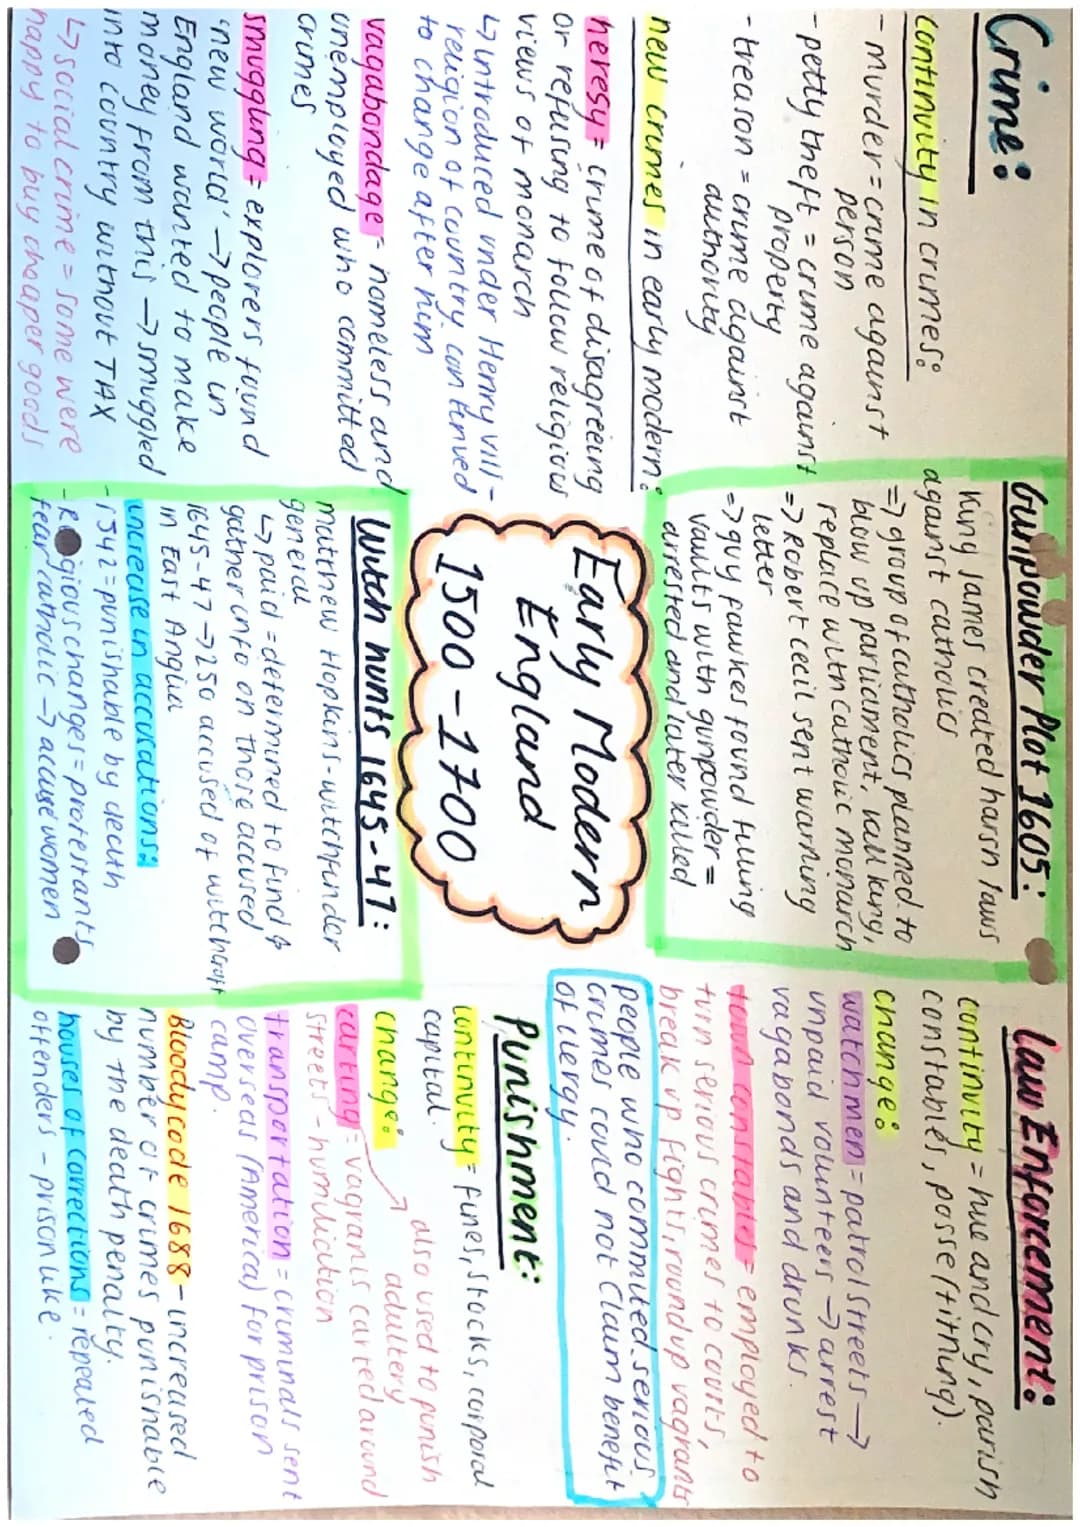 Crime:
continuity in crimes:
- murder = crime against
person
- petty theft = crime against
property
- treason = crime against
authority
new crimes in early modern:
heresy = crime of disagreeing
or refusing to follow religious
views of monarch
↳ introduced under Henry VIII -
religion of country continued
to change after him
vagabondage - homeless and
unemployed who committed
crimes
smuggling = explorers found
'new world' → people in
England wanted to make
money from this → smuggled
into country without TAX
↳ social crime = some were
happy to buy cheaper goods
Gunpowder Plot 1605:
King James created harsh laws
against catholics
=> group of catholics planned to
blow up parliament, kill king,
replace with catholic monarch
=> Robert cecil sent warning
letter
=> guy fawkes found filling
vaults with gunpowder =
arrested and later killed
Early Modern
England
1500 - 1700
Witch hunts 1645-47:
matthew Hopkins - witchfinder
general
↳ paid = determined to find &
gather info on those accused
1645-47 → 250 accused of witchcraft
in East Anglia
increase in accusations:
- 1542 = punishable by death
changes = protestants
fear catholic → accuse women
Law Enforcement:
continuity = hue and cry, parish
constables, posse (tithing).
change:
watchmen = patrol streets →
unpaid volunteers → arrest
vagabonds and drunks.
town constables = employed to
turn serious crimes to courts,
break up fights, round up vagrants
people who committed serious
crimes could not claim benefit
of clergy.
Punishment:
continuity = fines, stocks, corporal
capital.
change:
also used to punish
adultery
carting = vagrants carted around
streets - humiliation
transportation = criminals sent
overseas (America) for prison
camp.
Bloody code 1688 - increased
number of crimes punishable
by the death penalty.
houses of corrections = repeated
offenders - prison like.